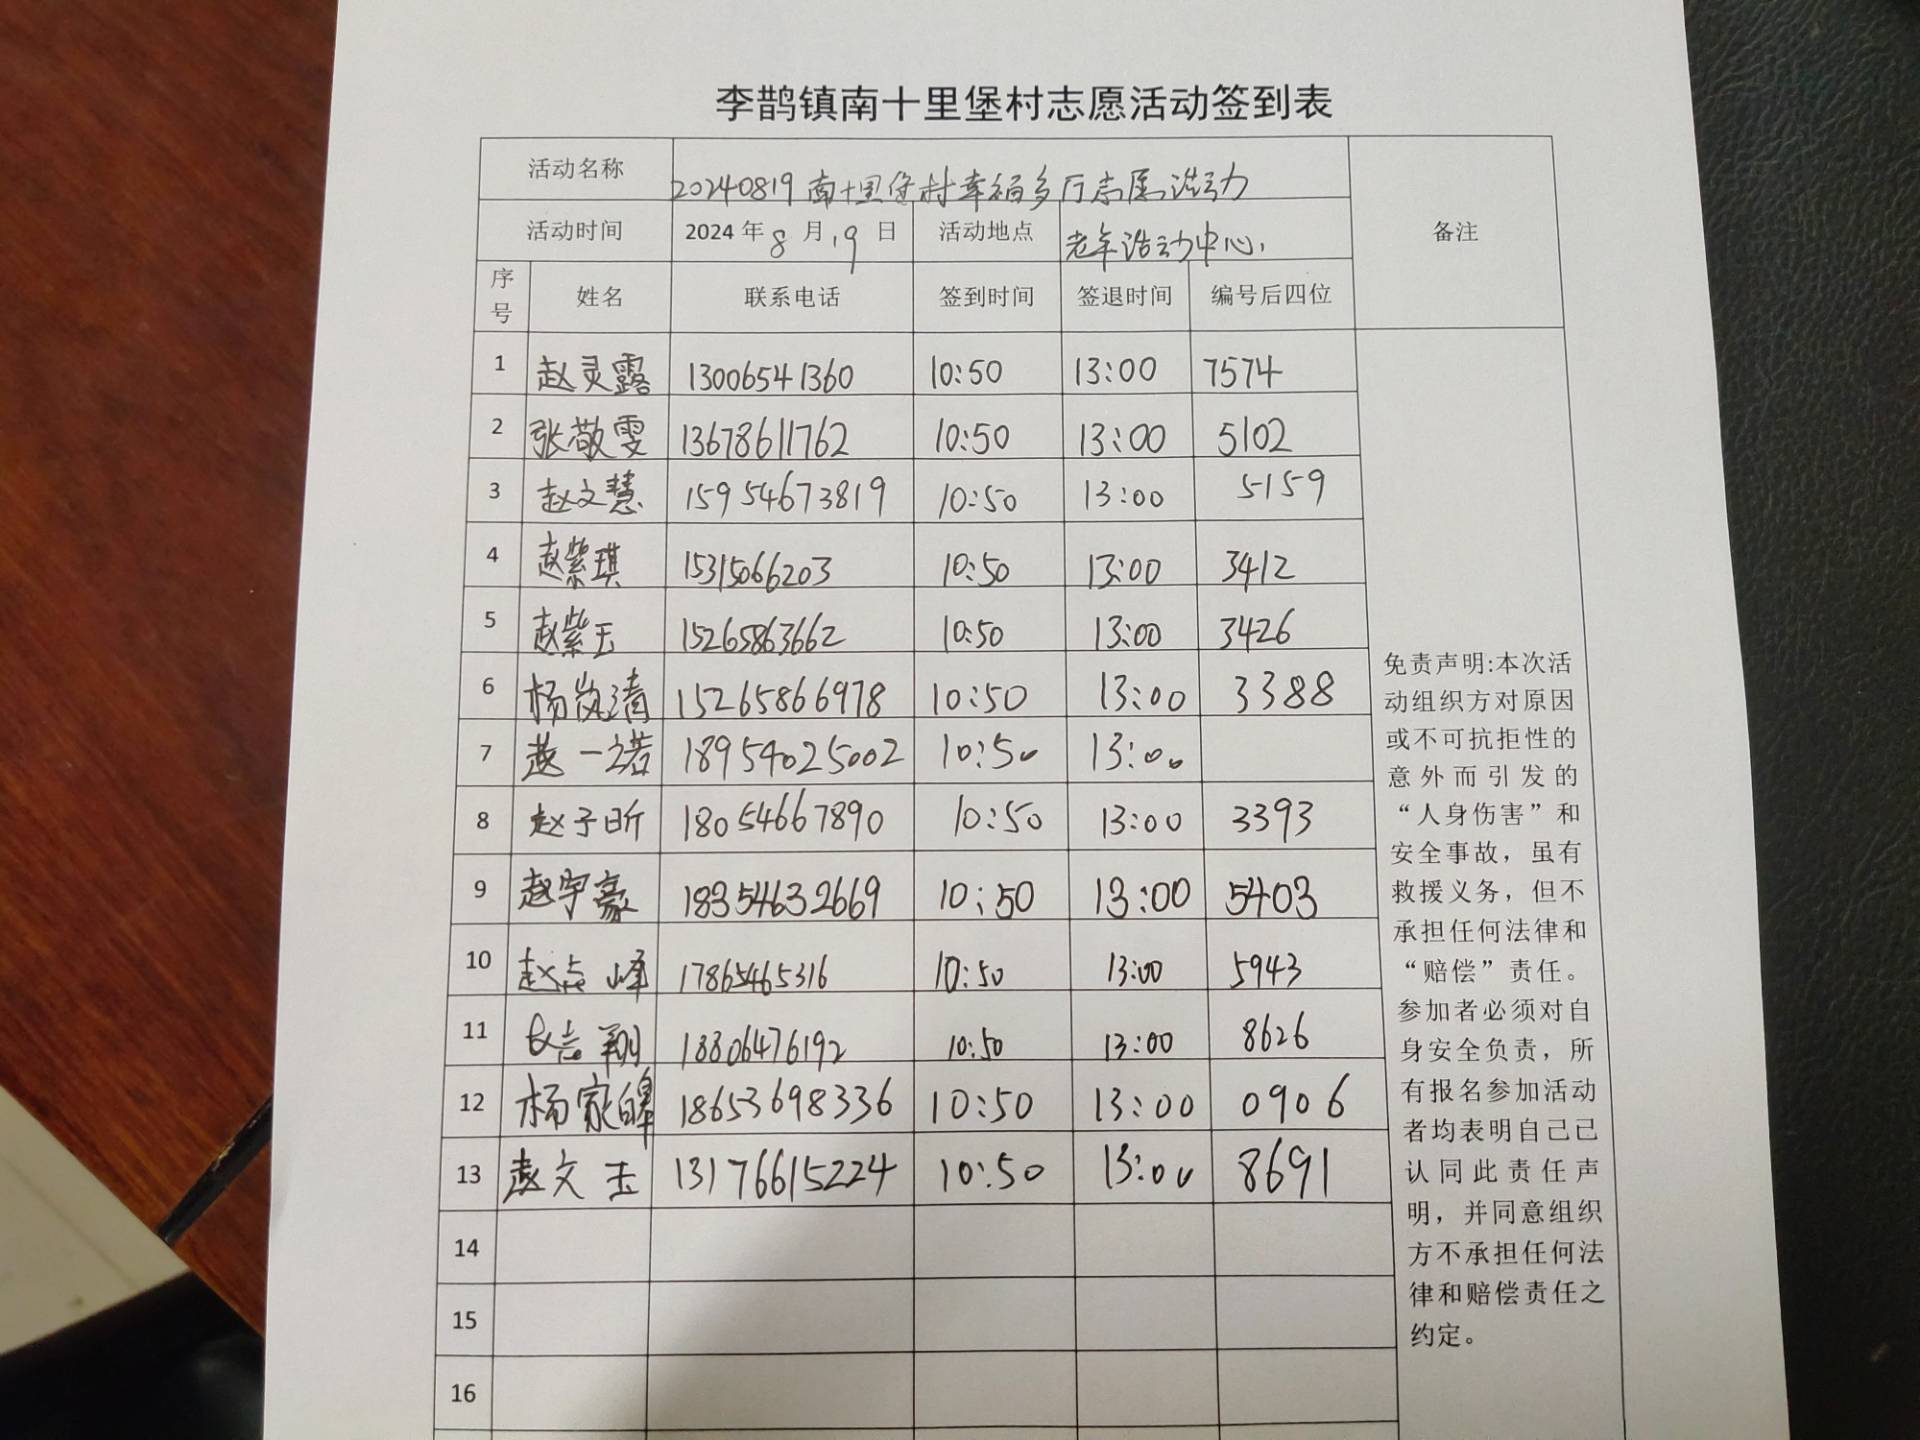 李鹊镇南十里堡村志愿活动签到表
活动名称 20240819南十里堡村幸福食厅志愿活动 备注
活动时间 2024年8月19日 活动地点 老年活动中心
序号 姓名 联系电话 签到时间 签退时间 编号后四位
1 赵灵露 13006541360 10:50 13:00 7574
2 张敬雯 13678611762 10:50 13:00 5102
3 赵文慧 15954673819 10:50 13:00 5159
4 赵紫琪 15315066203 10:50 13:00 3412
5 赵紫玉 15265863662 10:50 13:00 3426
6 杨岚清 15265866978 10:50 13:00 3388
7 赵一诺 18954025002 10:50 13:00
8 赵子昕 18054667890 10:50 13:00 3393
9 赵宇豪 18354632669 10:50 13:00 5403
10 赵 峰 17865465316 10:50 13:00 5943
11 翔 18806476192 10:50 13:00 8626
12 杨家皞 18653698336 10:50 13:00 0906
13 赵文 13176615224 10:50 13:00 8691
14
15
16
免责声明:本次活
动组织方对原因
或不可抗拒性的
意外而引发的
“人身伤害”和
安全事故，虽有
救援义务，但不
承担任何法律和
“赔偿”责任。
参加者必须对自
身安全负责，所
有报名参加活动
者均表明自己已
认同此责任声
明，并同意组织
方不承担任何法
律和赔偿责任之
约定。